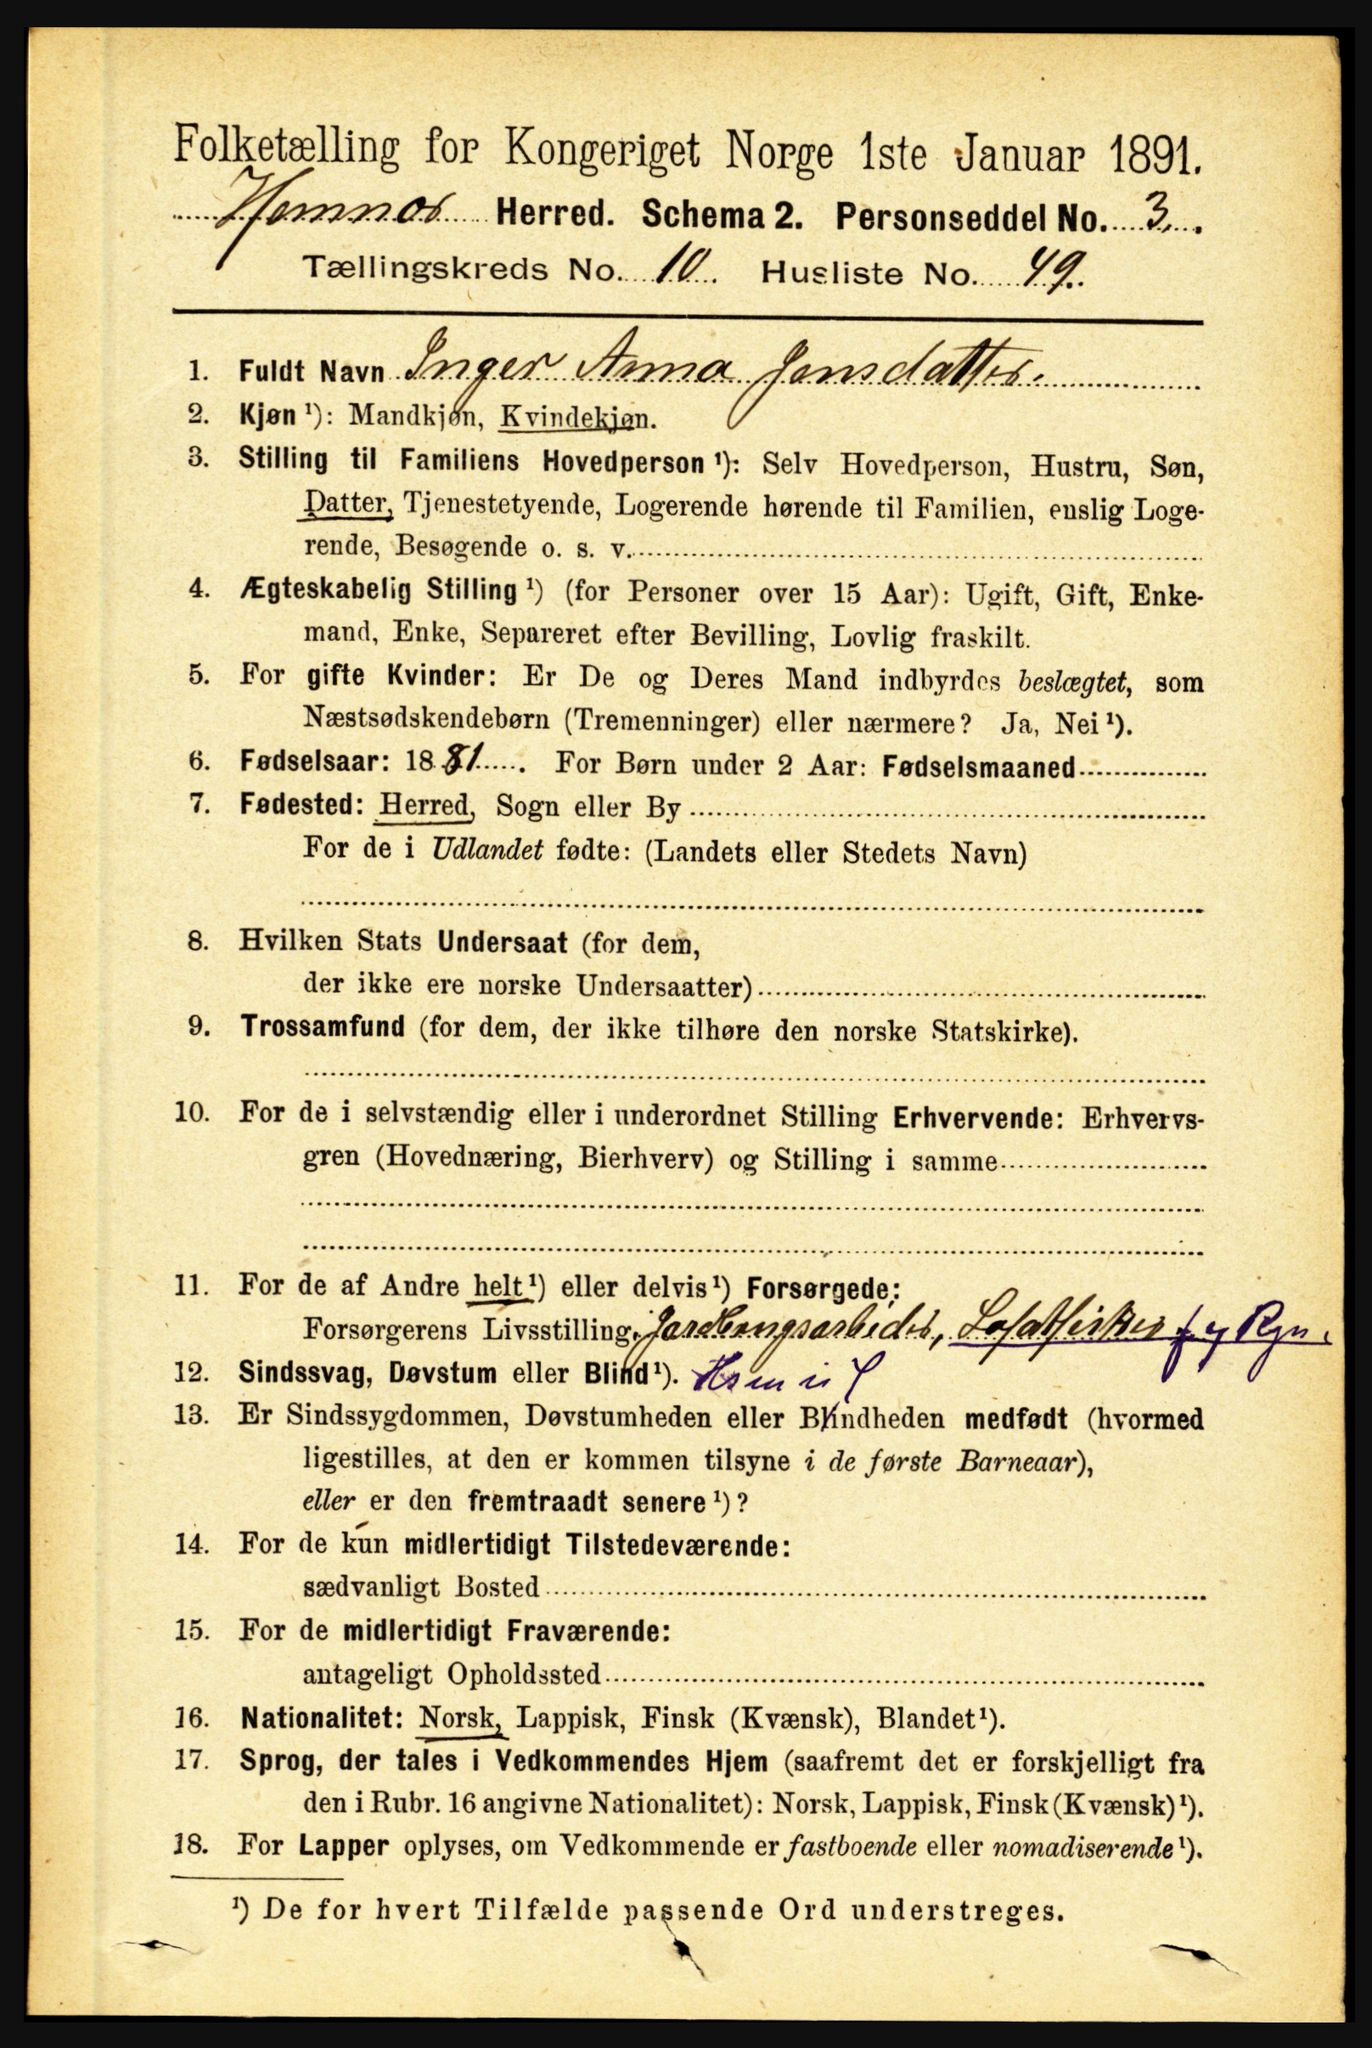 Folketælling for Kongeriget Norge 1ste Januar 1891.
Hemnæs Herred. Schema 2. Personseddel No. 3.
Tællingskreds No. 10. Husliste No. 49.
1. Fuldt Navn Inger Anna Jensdatter.
2. Kjøn ¹): Mandkjøn, Kvindekjøn.
3. Stilling til Familiens Hovedperson ¹): Selv Hovedperson, Hustru, Søn,
Datter, Tjenestetyende, Logerende hørende til Familien, enslig Loge-
rende, Besøgende o. s. v.
4. Ægteskabelig Stilling ¹) (for Personer over 15 Aar): Ugift, Gift, Enke-
mand, Enke, Separeret efter Bevilling, Lovlig fraskilt.
5. For gifte Kvinder: Er De og Deres Mand indbyrdes beslægtet, som
Næstsødskendebørn (Tremenninger) eller nærmere? Ja, Nei ¹).
6. Fødselsaar: 1881. For Børn under 2 Aar: Fødselsmaaned
7. Fødested: Herred, Sogn eller By
For de i Udlandet fødte: (Landets eller Stedets Navn)
8. Hvilken Stats Undersaat (for dem,
der ikke ere norske Undersaatter)
9. Trossamfund (for dem, der ikke tilhøre den norske Statskirke).
10. For de i selvstændig eller i underordnet Stilling Erhvervende: Erhvervs-
gren (Hovednæring, Bierhverv) og Stilling i samme
11. For de af Andre helt ¹) eller delvis ¹) Forsørgede:
Forsørgerens Livsstilling, Lofotfisker
12. Sindssvag, Døvstum eller Blind ¹).
13. Er Sindssygdommen, Døvstumheden eller Blindheden medfødt (hvormed
ligestilles, at den er kommen tilsyne i de første Barneaar),
eller er den fremtraadt senere ¹)?
14. For de kun midlertidigt Tilstedeværende:
sædvanligt Bosted
15. For de midlertidigt Fraværende:
antageligt Opholdssted
16. Nationalitet: Norsk, Lappisk, Finsk (Kvænsk), Blandet ¹).
17. Sprog, der tales i Vedkommendes Hjem (saafremt det er forskjelligt fra
den i Rubr. 16 angivne Nationalitet): Norsk, Lappisk, Finsk (Kvænsk) ¹).
18. For Lapper oplyses, om Vedkommende er fastboende eller nomadiserende ¹).
¹) De for hvert Tilfælde passende Ord understreges.